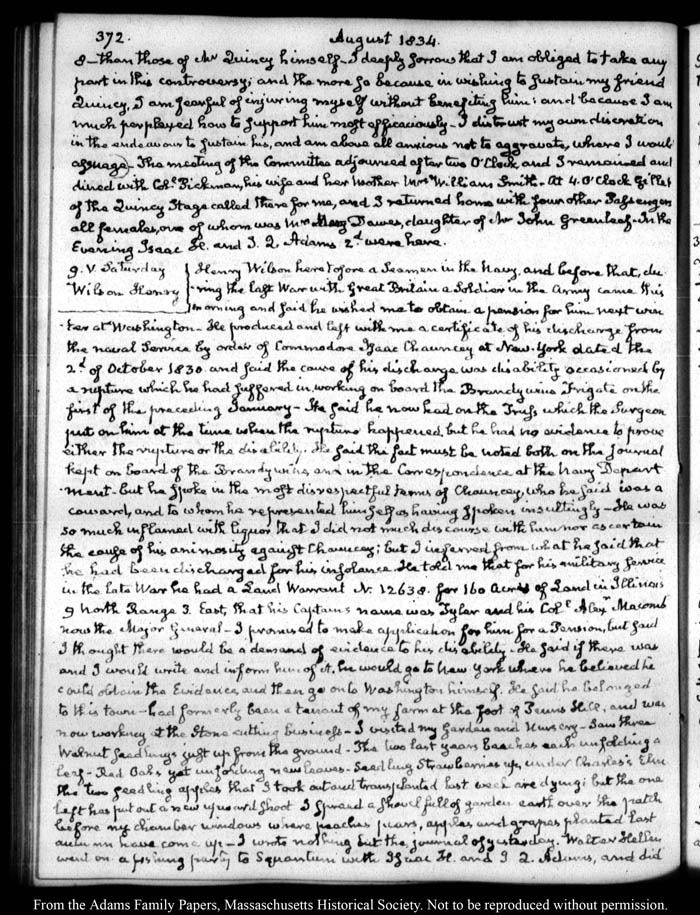 372.
August 1834.
8 – than those of Mr Quincy himself – I deeply sorrow that I am obliged to take any
part in this controversy; and the more so because in wishing to sustain my friend
Quincy, I am fearful of injuring myself without benefiting him: and because I am
much perplexed how to support him most efficaciously – I distrust my own discretion
in the endeavour to sustain his, and am above all anxious not to aggravate, where I would
assuage – The meeting of the Committee adjourned after two O'Clock, and I remained and
dined with Coll Pickman, his wife and her Mother Mrs William Smith – At 4. O'Clock Gillet
of the Quincy Stage called there for me, and I returned home with four other Passengers
all females, one of whom was Mrs Mary Dawes, daughter of Mr John Greenleaf – In the
Evening Isaac H. and J. Q. Adams 2d were here.
9. V. Saturday
Wilson Henry
Henry Wilson heretofore a Seaman in the Navy, and before that, du-
-ring the last War with Great Britain a Soldier in the Army came this
morning and said he wished me to obtain a pension for him next win
ter at Washington – He produced and left with me a certificate of his discharge from
the naval Service by order of Commodore Isaac Chauncey at New-York dated the
2d of October 1830. and said the cause of his discharge was disability occasioned by
a rupture which he had suffered in working on board the Brandywine Frigate on the
first of the preceding January – He said he now had on the Truss which the Surgeon
put on him at the time when the rupture happened, but he had no evidence to prove
either the rupture or the disability. He said the fact must be noted both on the Journal
kept on board of the Brandywine, and in the Correspondence at the Navy Depart
ment – but he spoke in the most disrespectful terms of Chauncey, who he said was a
coward, and to whom he represented himself as having spoken insultingly – He was
so much inflamed with liquor that I did not much discourse with him nor ascertain
the cause of his animosity against Chauncey; but I inferred from what he said that
he had been discharged for his insolence. He told me that for his military service
in the late War he had a Land Warrant N. 12638. for 160 Acres of Land in Illinois
9 North Range 3. East, that his Captain's name was Tyler and his Coll Alexr Macomb
now the Major General – I promised to make application for him for a Pension, but said
I thought there would be a demand of evidence to his disability – He said if there was
and I would write and inform him of it, he would go to New York where he believed he
could obtain the Evidence, and then go on to Washington himself. He said he belonged
to this town – had formerly been a tenant of my farm at the foot of Penns Hill, and was
now working at the Stone cutting business – I visited my Garden and Nursery – Saw three
Walnut seedlings just up from the ground – The two last years beaches each unfolding a
leaf – Red Oaks yet unfolding new leaves – Seedling Strawberries up, under Charles's Elm
the two seedling apples that I took out and transplanted last week are dying; but the one
left has put out a new upward shoot I spread a shovel full of garden earth over the patch
before my chamber windows where peaches pears, apples and grapes planted last
autumn have come up – I wrote nothing but the journal of yesterday. Walter Hellen
went on a fishing party to Squantum with Isaac H. and J Q. Adams, and did
From the Adams Family Papers, Massachusetts Historical Society. Not to be reproduced without permission.